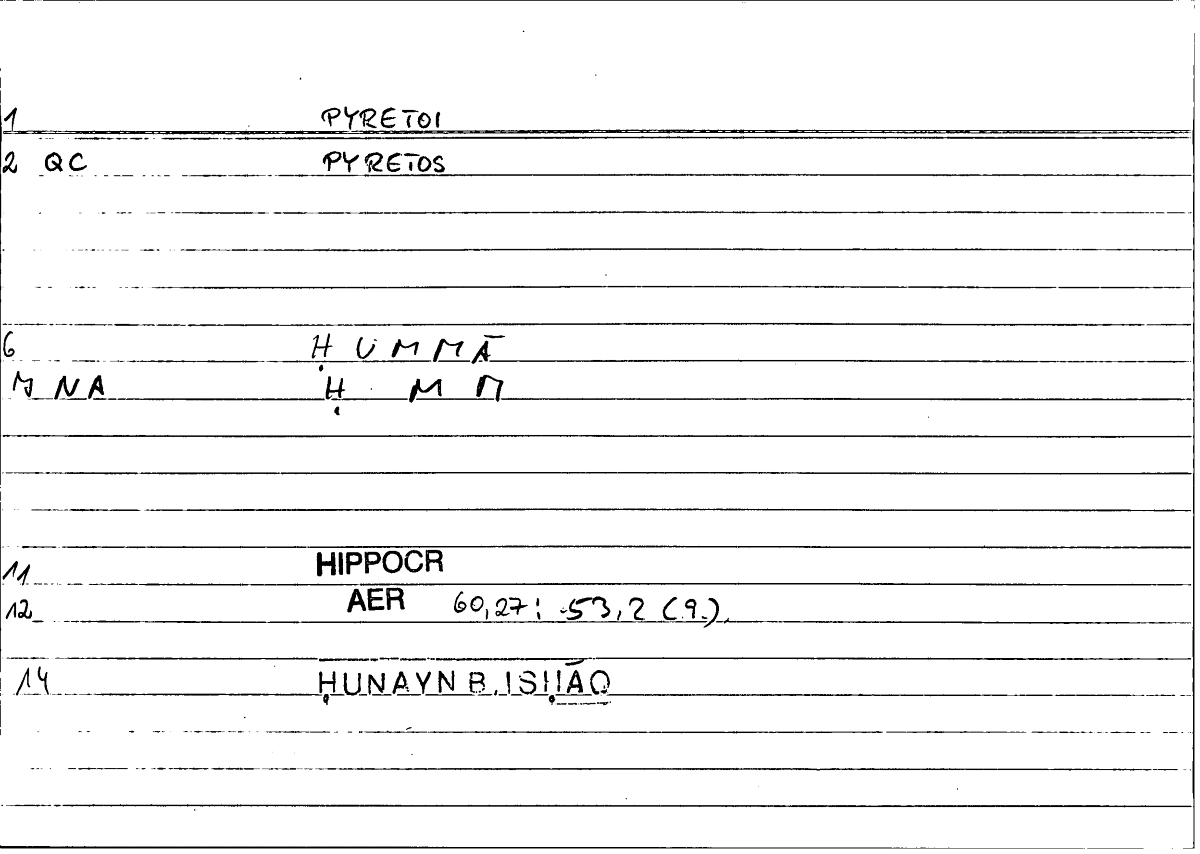 1 PYRETOI
2 QC PYRETOS
6 ḤUMMĀ
7 NA Ḥ M M
11 HIPPOCR
12 AER 60,27: 53,2 (9.)
14 ḤUNAYN B. ISḤĀQ